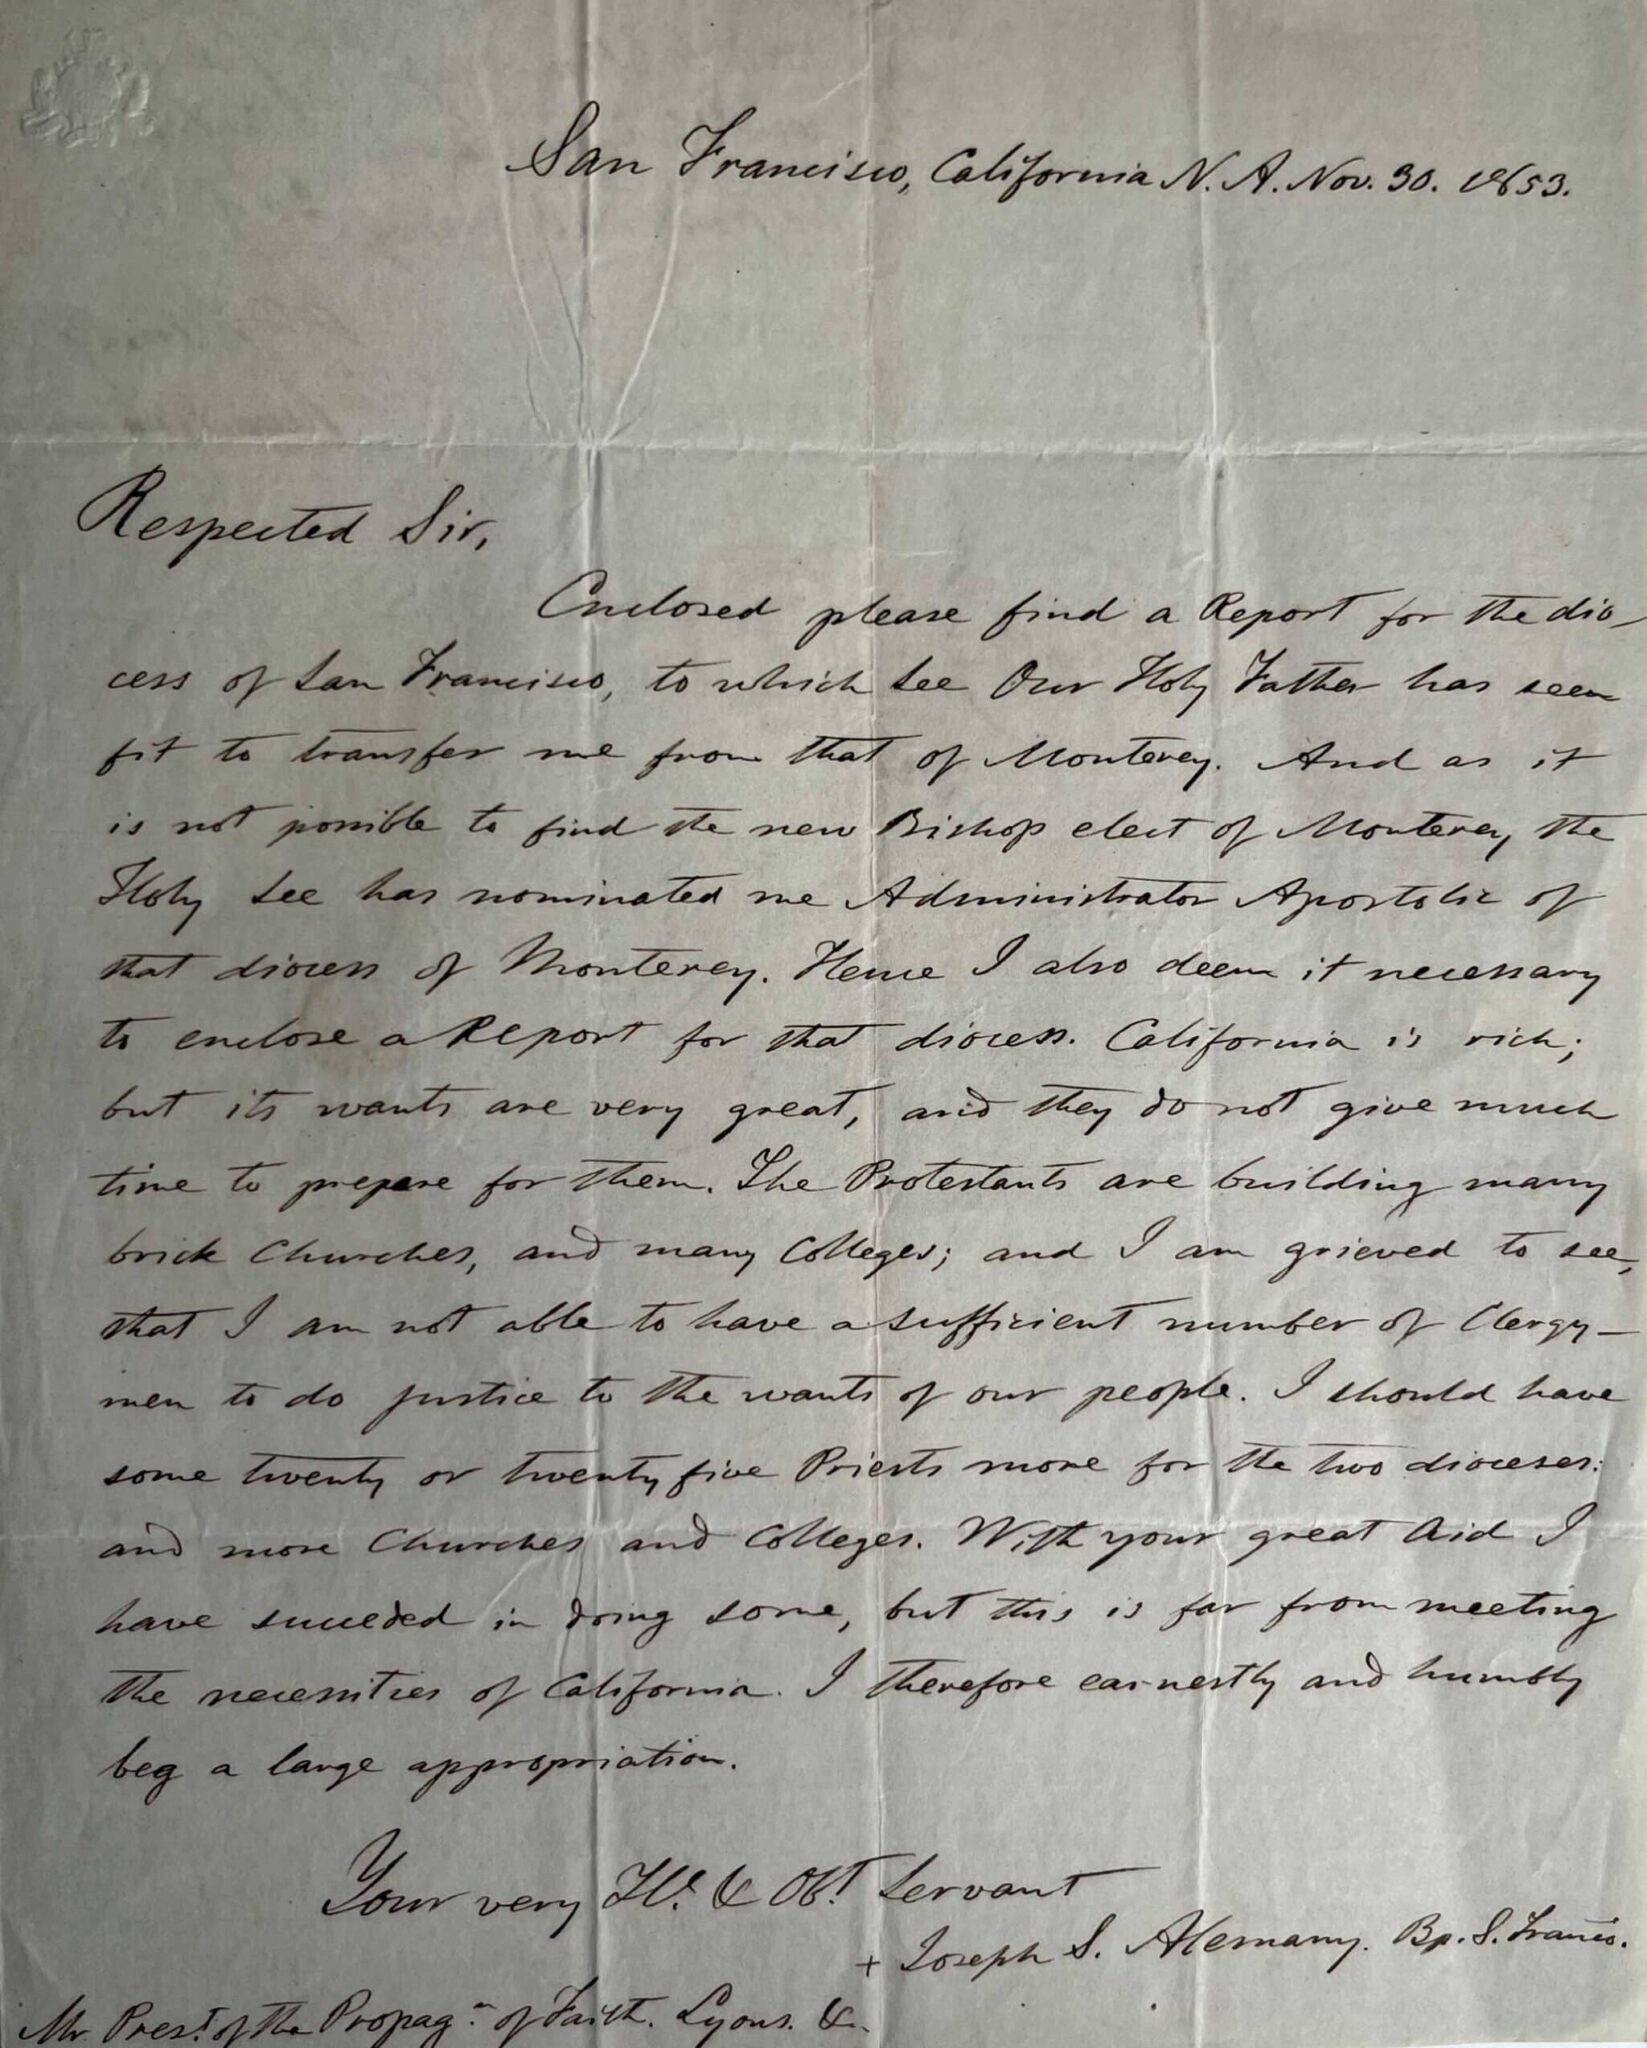 San Francisco, California N. A. Nov. 30. 1853.
Respected Sir,
Enclosed please find a Report for the dio-
cess of San Francisco, to which See Our Holy Father has seen
fit to transfer me from that of Monterey. And as it
is not possible to find the new Bishop elect of Monterey, the
Holy See has nominated me Administrator Apostolic of
that diocess of Monterey. Hence I also deem it necessary
to enclose a Report for that diocess. California is rich;
but its wants are very great, and they do not give much
time to prepare for them. The Protestants are building many
brick Churches, and many Colleges; and I am grieved to see,
that I am not able to have a sufficient number of Clergy-
men to do justice to the wants of our people. I should have
some twenty or twenty five Priests more for the two dioceses:
and more Churches and Colleges. With your great Aid I
have succeded in doing some, but this is far from meeting
the necessities of California. I therefore earnestly and humbly
beg a large appropriation.
Your very H&#x1D49;. & Ob.t Servant
+ Joseph S. Alemany. Bp. S. Franco.
Mr. Pres.t of the Propag.n of Faith. Lyons. &c.